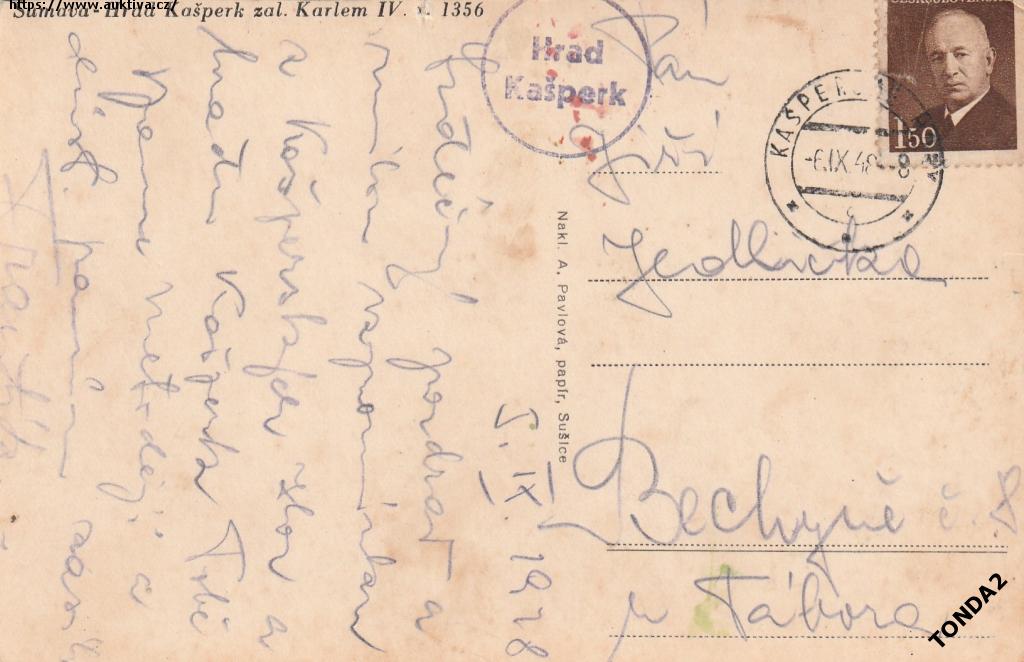 https://www.auktiva.cz/
Šumava-Hrad Kašperk zal. Karlem IV. r. 1356
Hrad
Kašperk
ČESKOSLOVENSKO
150
KAŠPERSKÉ HORY
-6.IX.48 - 8
Pan
Jiří
Jedlička
Bechyně č. 8
u Tábora
Nakl. A. Pavlová, papír, Sušice
5. IX. 1948
Srdečný pozdrav a
milou vzpomínku
z Kašperských Hor a
hradu Kašperka Tobě
Tvým
TONDA2